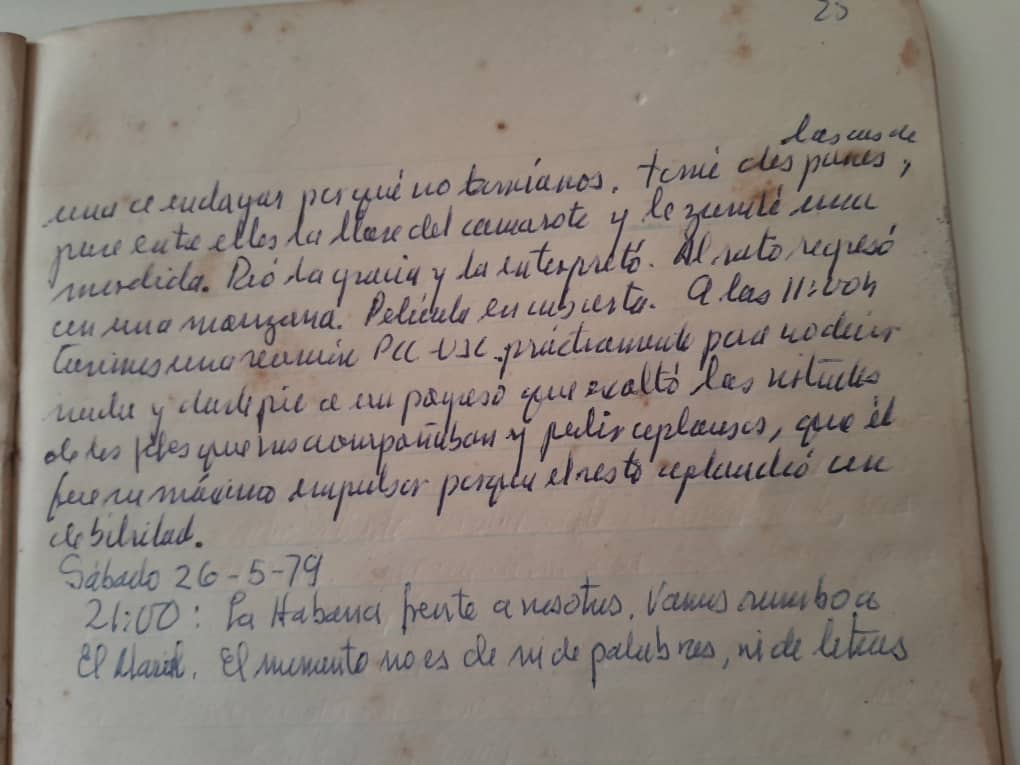 25
las cus de
una a indagar por qué no comíamos. tomé dos panes,
puse entre ellos la llave del camarote y le zumbé una
mordida. Rió la gracia y la interpretó. Al rato regresó
con una manzana. Película en cubierta. A las 11:00h
tuvimos una reunión PCC-UJC prácticamente para no decir
nada y darle pie a un payaso que exaltó las virtudes
de los jefes que nos acompañaban y pedir aplausos, que él
fue su máximo impulsor porque el resto aplaudió con
debilidad.
Sábado 26-5-79
21:00: La Habana frente a nosotros. Vamos rumbo a
El Mariel. El momento no es de ni de palabras, ni de letras